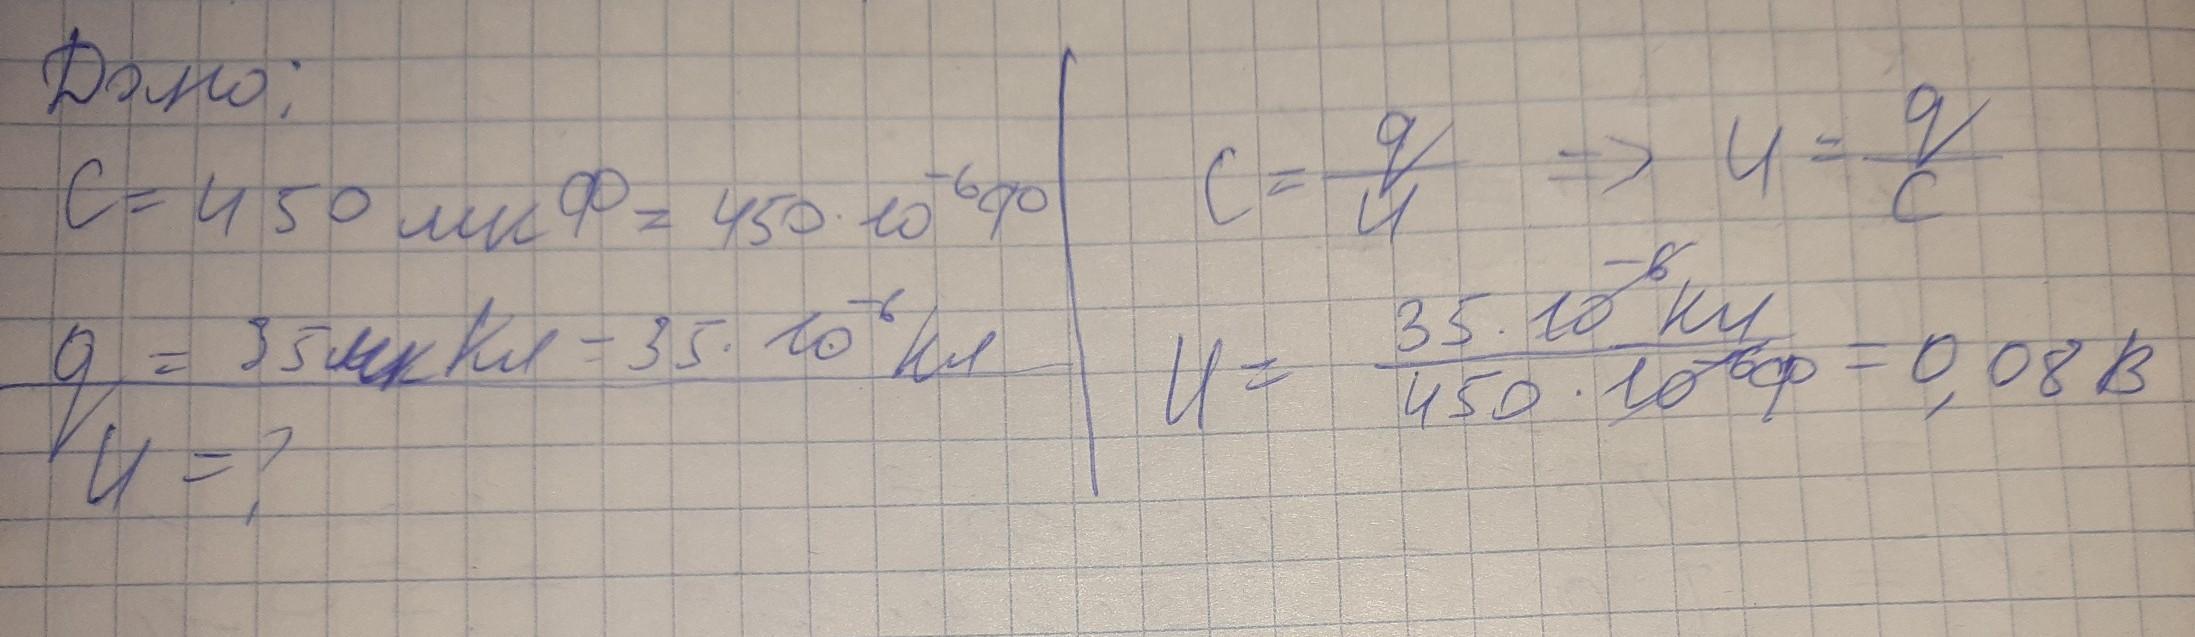 Дано:
C = 450 мкФ = 450 · 10⁻⁶ Ф
q = 35 мкКл = 35 · 10⁻⁶ Кл
U = ?
C = q/U => U = q/C
U = 35 · 10⁻⁶ Кл / 450 · 10⁻⁶ Ф = 0,08 В